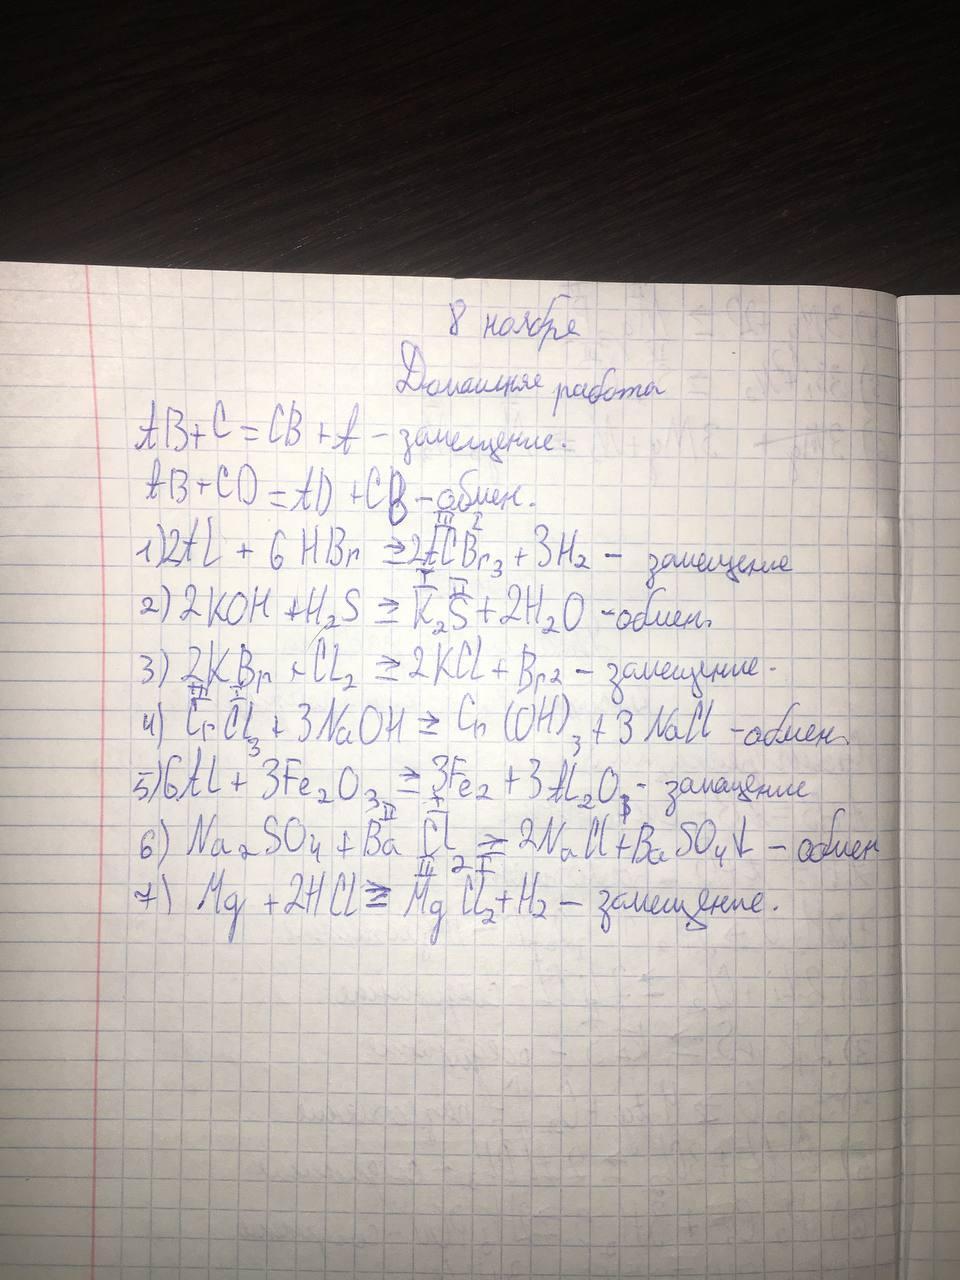 8 ноября
Домашняя работа
AB+C=CB+A – замещение.
AB+CD=AD+CB – обмен.
1) 2Al + 6HBr = 2AlBr₃ + 3H₂ – замещение
2) 2KOH + H₂S = K₂S + 2H₂O – обмен.
3) 2KBr + Cl₂ = 2KCl + Br₂ – замещение.
4) CrCl₃ + 3NaOH = Cr(OH)₃ + 3NaCl – обмен.
5) 6Al + 3Fe₂O₃ = 3Fe₂ + 3Al₂O₃ – замещение
6) Na₂SO₄ + BaCl₂ = 2NaCl + BaSO₄↓ – обмен
7) Mg + 2HCl = MgCl₂ + H₂ – замещение.